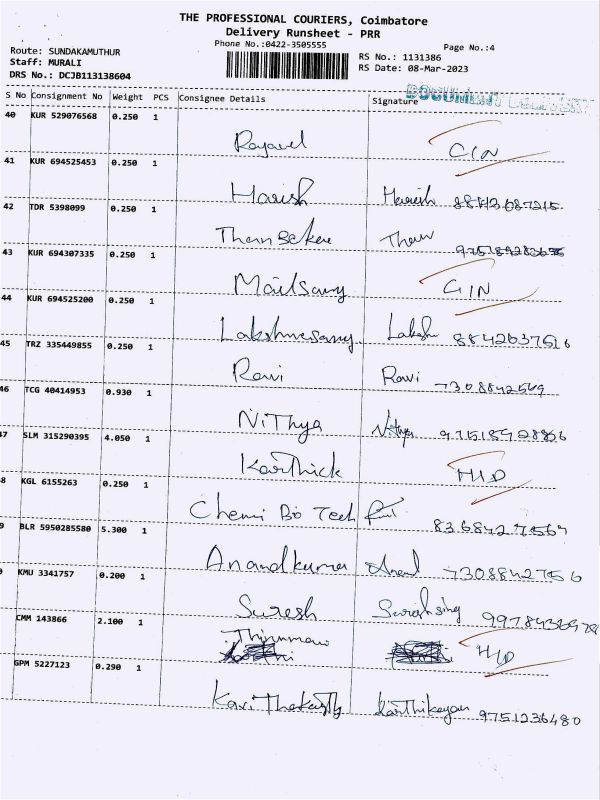 THE PROFESSIONAL COURIERS, Coimbatore
Delivery Runsheet - PRR
Phone No.:0422-3505555
Page No.:4
Route: SUNDAKAMUTHUR
Staff: MURALI
DRS No.: DCJB113138604
RS No.: 1131386
RS Date: 08-Mar-2023
S No Consignment No Weight PCS Consignee Details Signature
40 KUR 529076568 0.250 1
Rajavel
41 KUR 694525453 0.250 1
Harish Harish
42 TDR 5398099 0.250 1
43 KUR 694307335 0.250 1
Mailsamy
44 KUR 694525200 0.250 1
Lakshmesamy Laksh 8842037516
45 TRZ 335449855 0.250 1
Ravi Ravi 7308842569
46 TCG 40414953 0.930 1
Nithya Nithya
47 SLM 315290395 4.050 1
Karthick
8 KGL 6155263 0.250 1
Chemi Bo Tech
9 BLR 5950285580 5.300 1
Anandkumar Anand 7308842756
KMU 3341757 0.200 1
Suresh Suresh sing
CMM 143866 2.100 1
GPM 5227123 0.290 1
Karthikeyan 9751236480